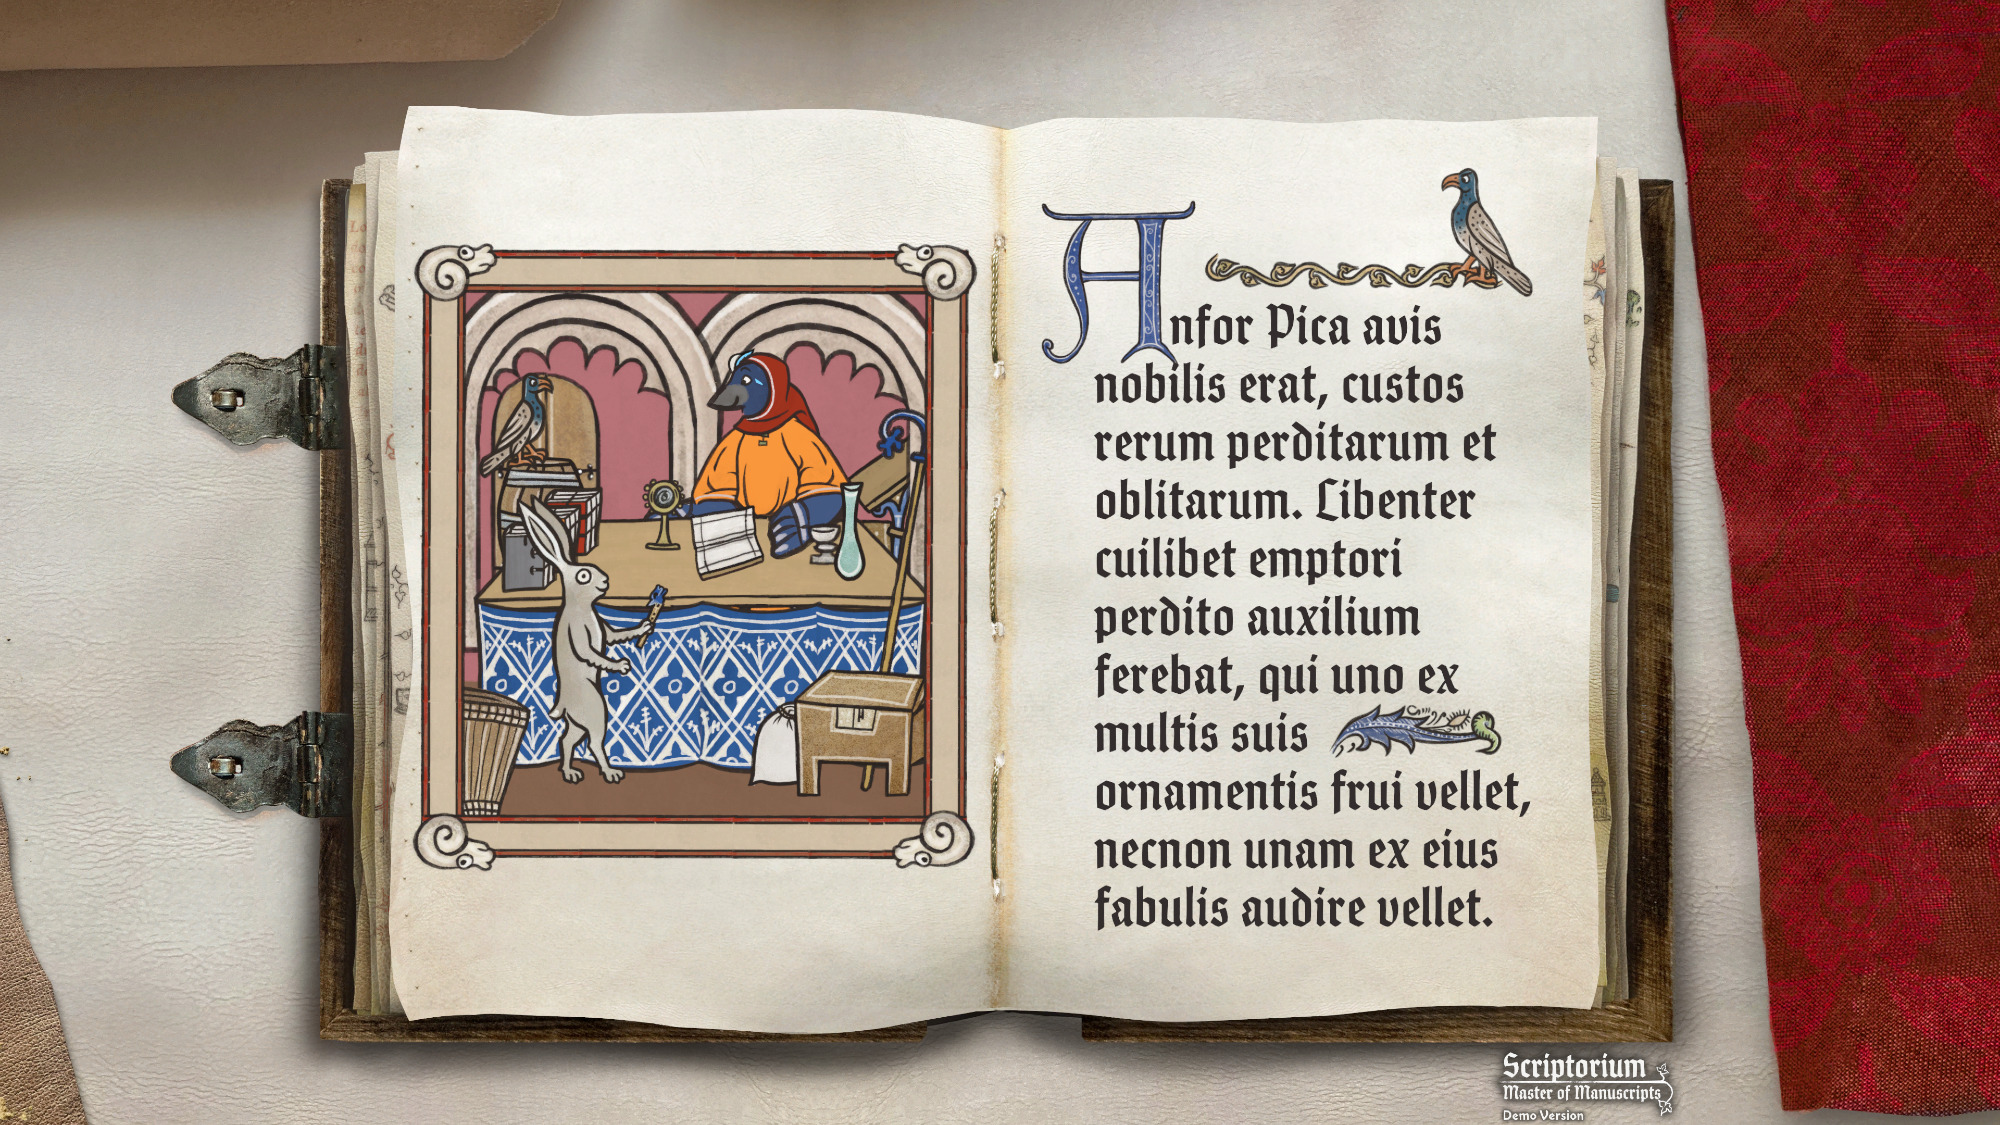 Anfor Pica avis
nobilis erat, custos
rerum perditarum et
oblitarum. Libenter
cuilibet emptori
perdito auxilium
ferebat, qui uno ex
multis suis
ornamentis frui vellet,
necnon unam ex eius
fabulis audire vellet.
Scriptorium
Master of Manuscripts
Demo Version